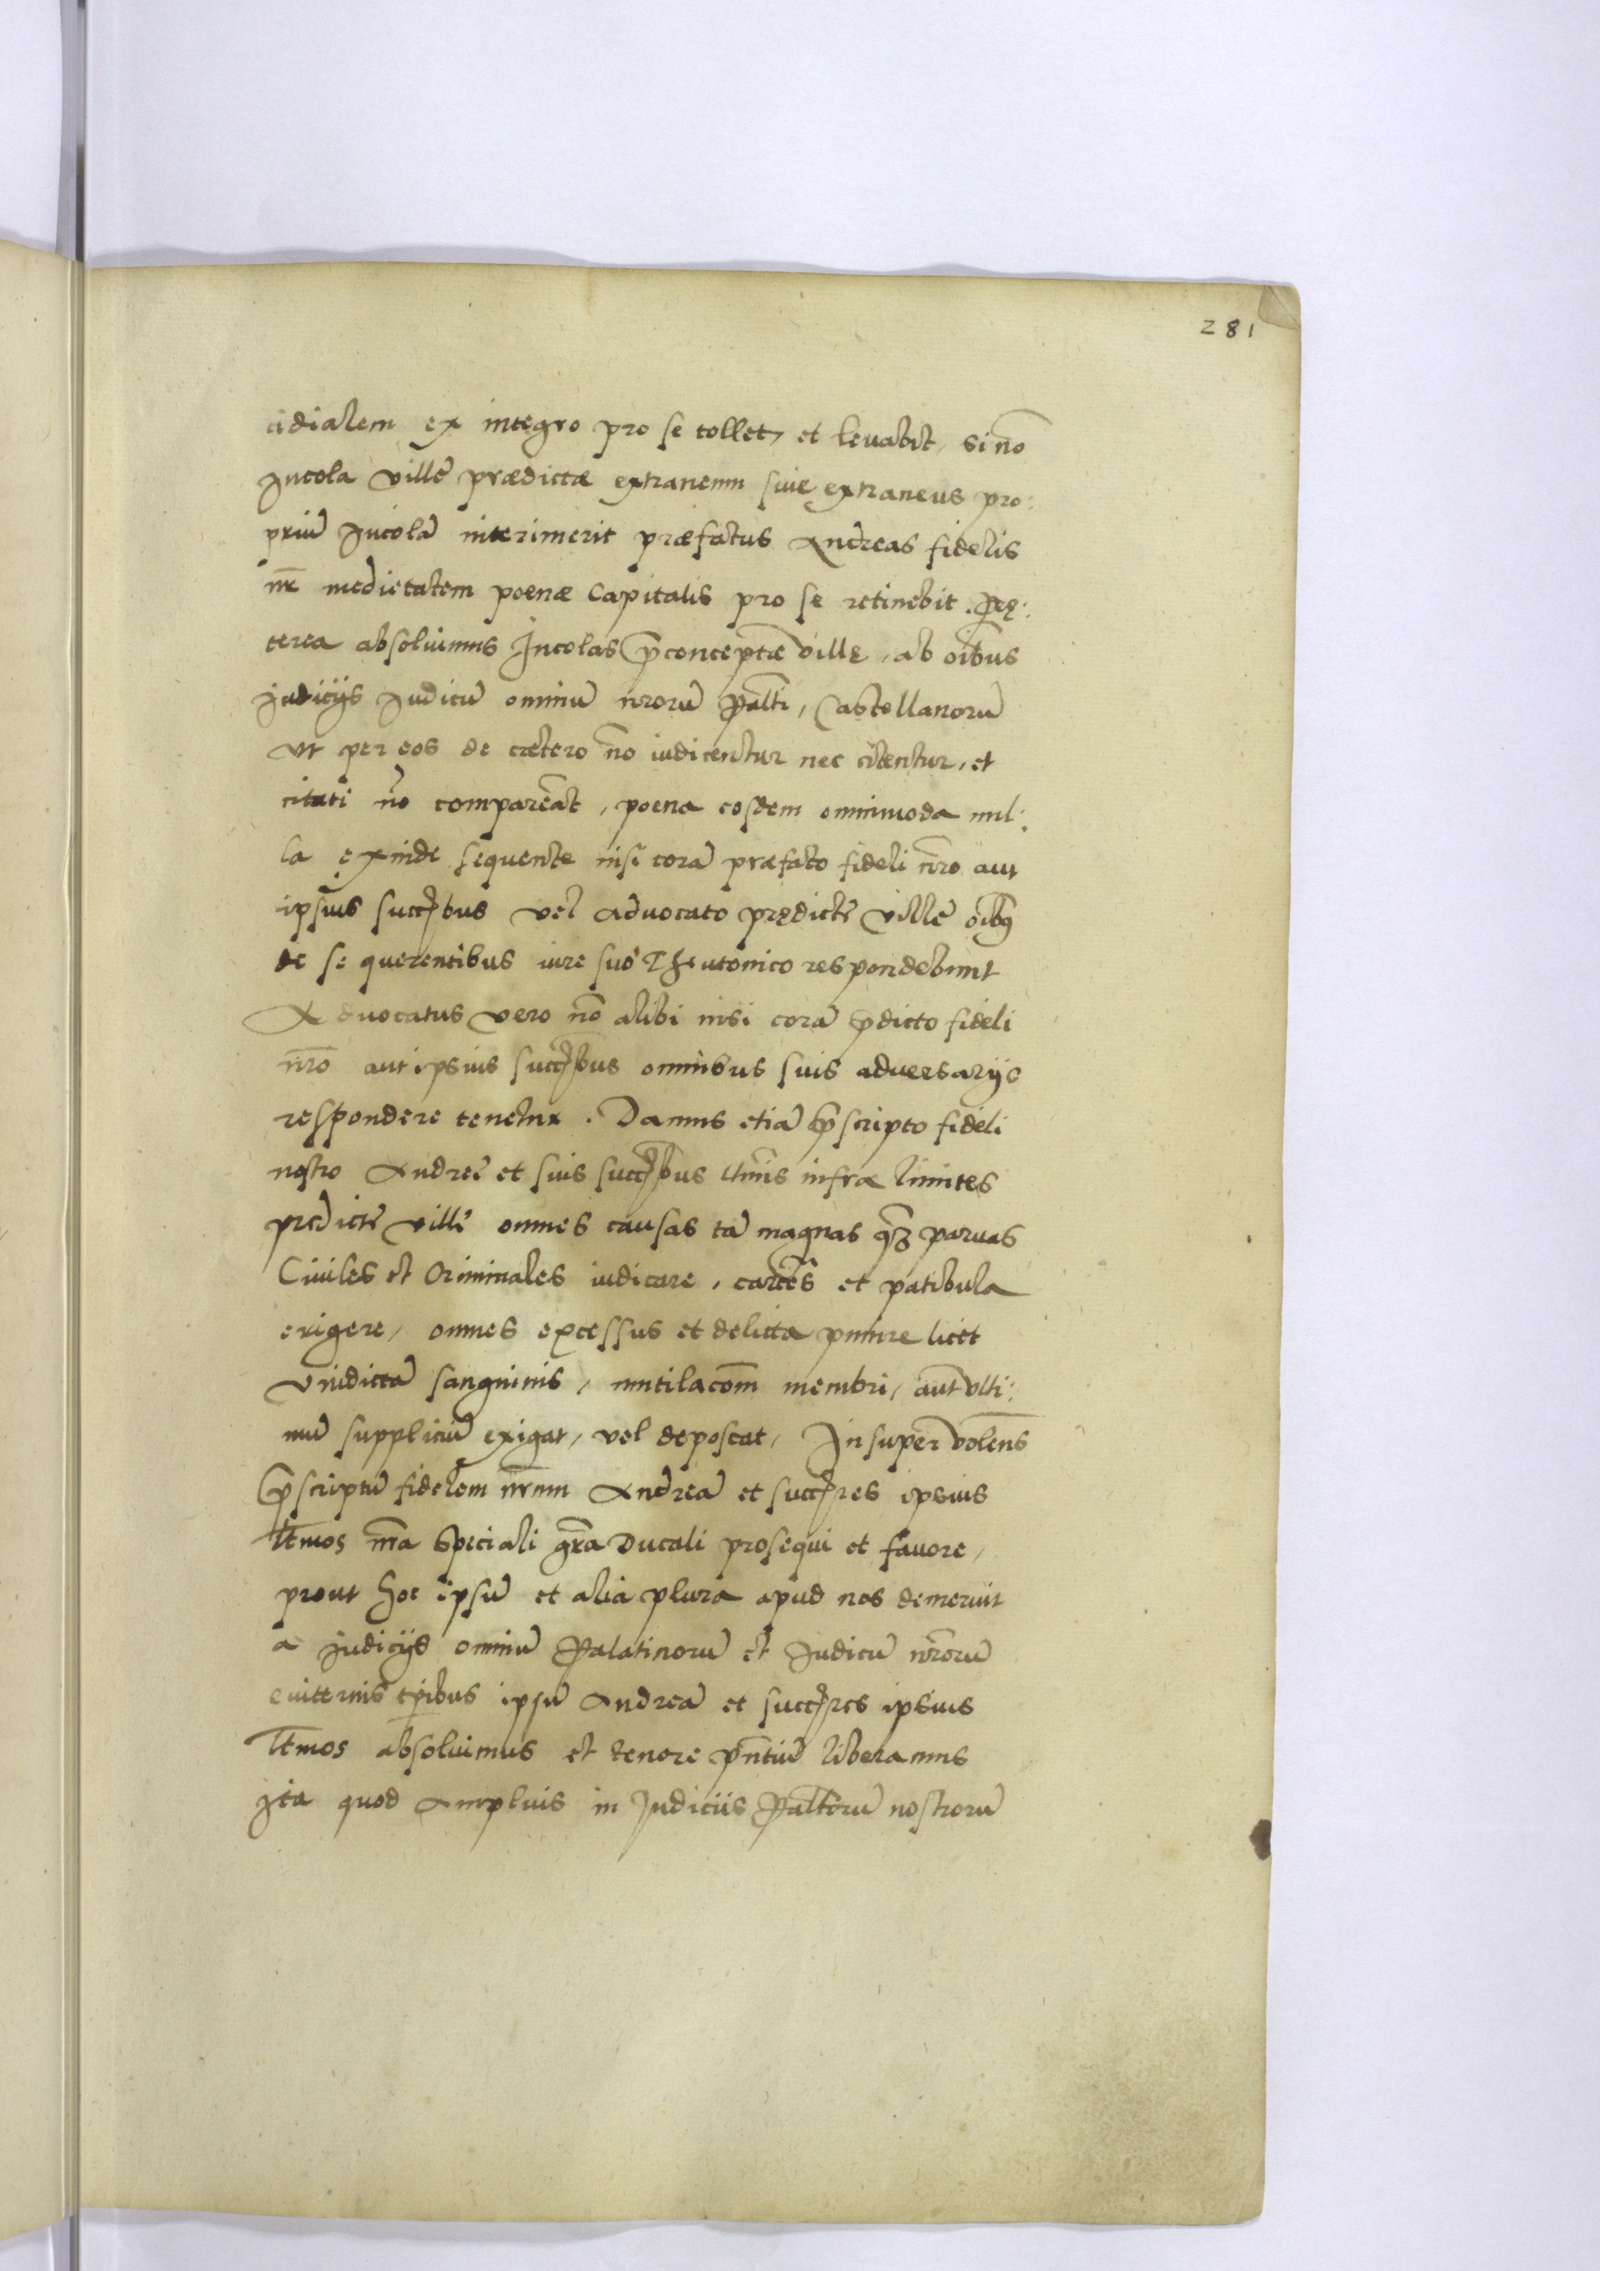 281
cidialem ex integro pro se tollet, et levabit, si nõ
Incola villę prædictæ extraneum sive extraneus pro:
priũ Incolã interimerit præfatus Andreas fidelis
nr̃ medietatem poenæ Capitalis pro se retinebit. Prę:
terea absolvimus Incolas p̃conceptæ villę, ab oĩbus
Iudicijs Iudicũ omniũ nr̃orũ Palt̃i, Castellanorũ
Ut per eos de cætero nõ iudicentur nec citentur, et
citati nõ compareãt, poena eosdem omnimoda nul:
la exinde sequente nisi corã præfato fideli nr̃o aut
ipsius succ̃ribus vel advocato prędictę villę oĩbus
de se querentibus iure suo Theutonico respondebunt
Advocatus vero nõ alibi nisi corã p̃dicto fideli
nr̃o aut ipsius succ̃ribus omnibus suis adversarijs
respondere tenetur. Damus etiã p̃scripto fideli
nostro Andreę et suis succ̃ribus ltm̃is infra limites
predictę villę omnes causas tã magnas q̃ȝ parvas
Civiles et Criminales iudicare, carcer̃s et patibula
erigere, omnes excessus et delicta punire licet
vindictã sanguinis, mutilacõm membri, aut ulti:
mũ suppliciũ exigat, vel deposcat, Insuper volen̄s
p̃scriptũ fidelem nr̃um Andreã et succ̃res ipsius
ltm̃os nr̃a speciali gr̃a Ducali prosequi et favore,
prout hoc ipsũ et alia plura apud nos demeruit
a Iudicijs omniũ Palatinorũ et Iudicũ nr̃orũ
eviternis tp̃ibus ipsũ Andreã et succ̃res ipsius
ltm̃os absolvimus et tenore pñtiũ liberamus
Ita quod amplius in Iudiciis Palt̃orũ nostrorũ